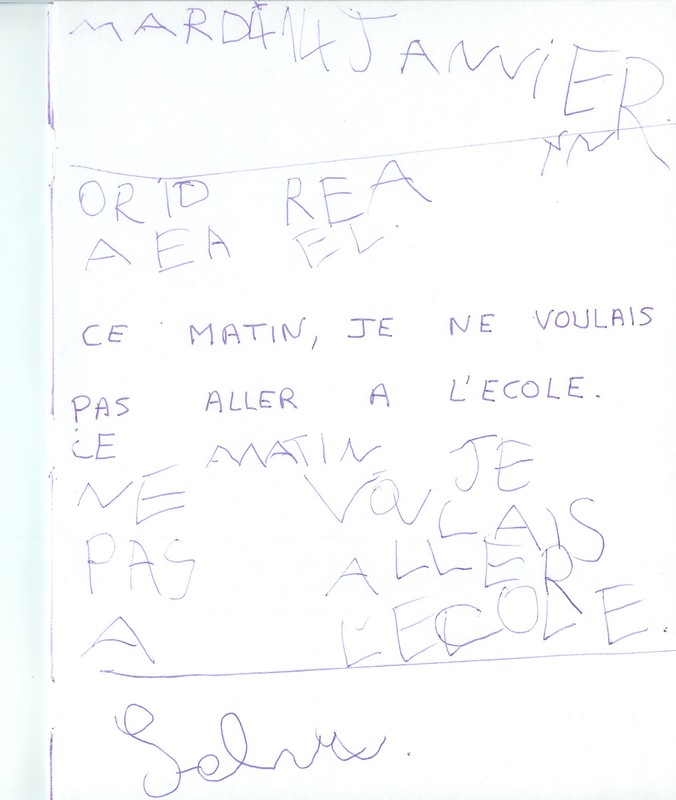 MARDI 14 JANVIER
NN
ORTD REA
AEA EL.
CE MATIN, JE NE VOULAIS
PAS ALLER A L'ECOLE.
CE MATIN, JE
NE VOULAIS
PAS ALLER
A L'ECOLE.